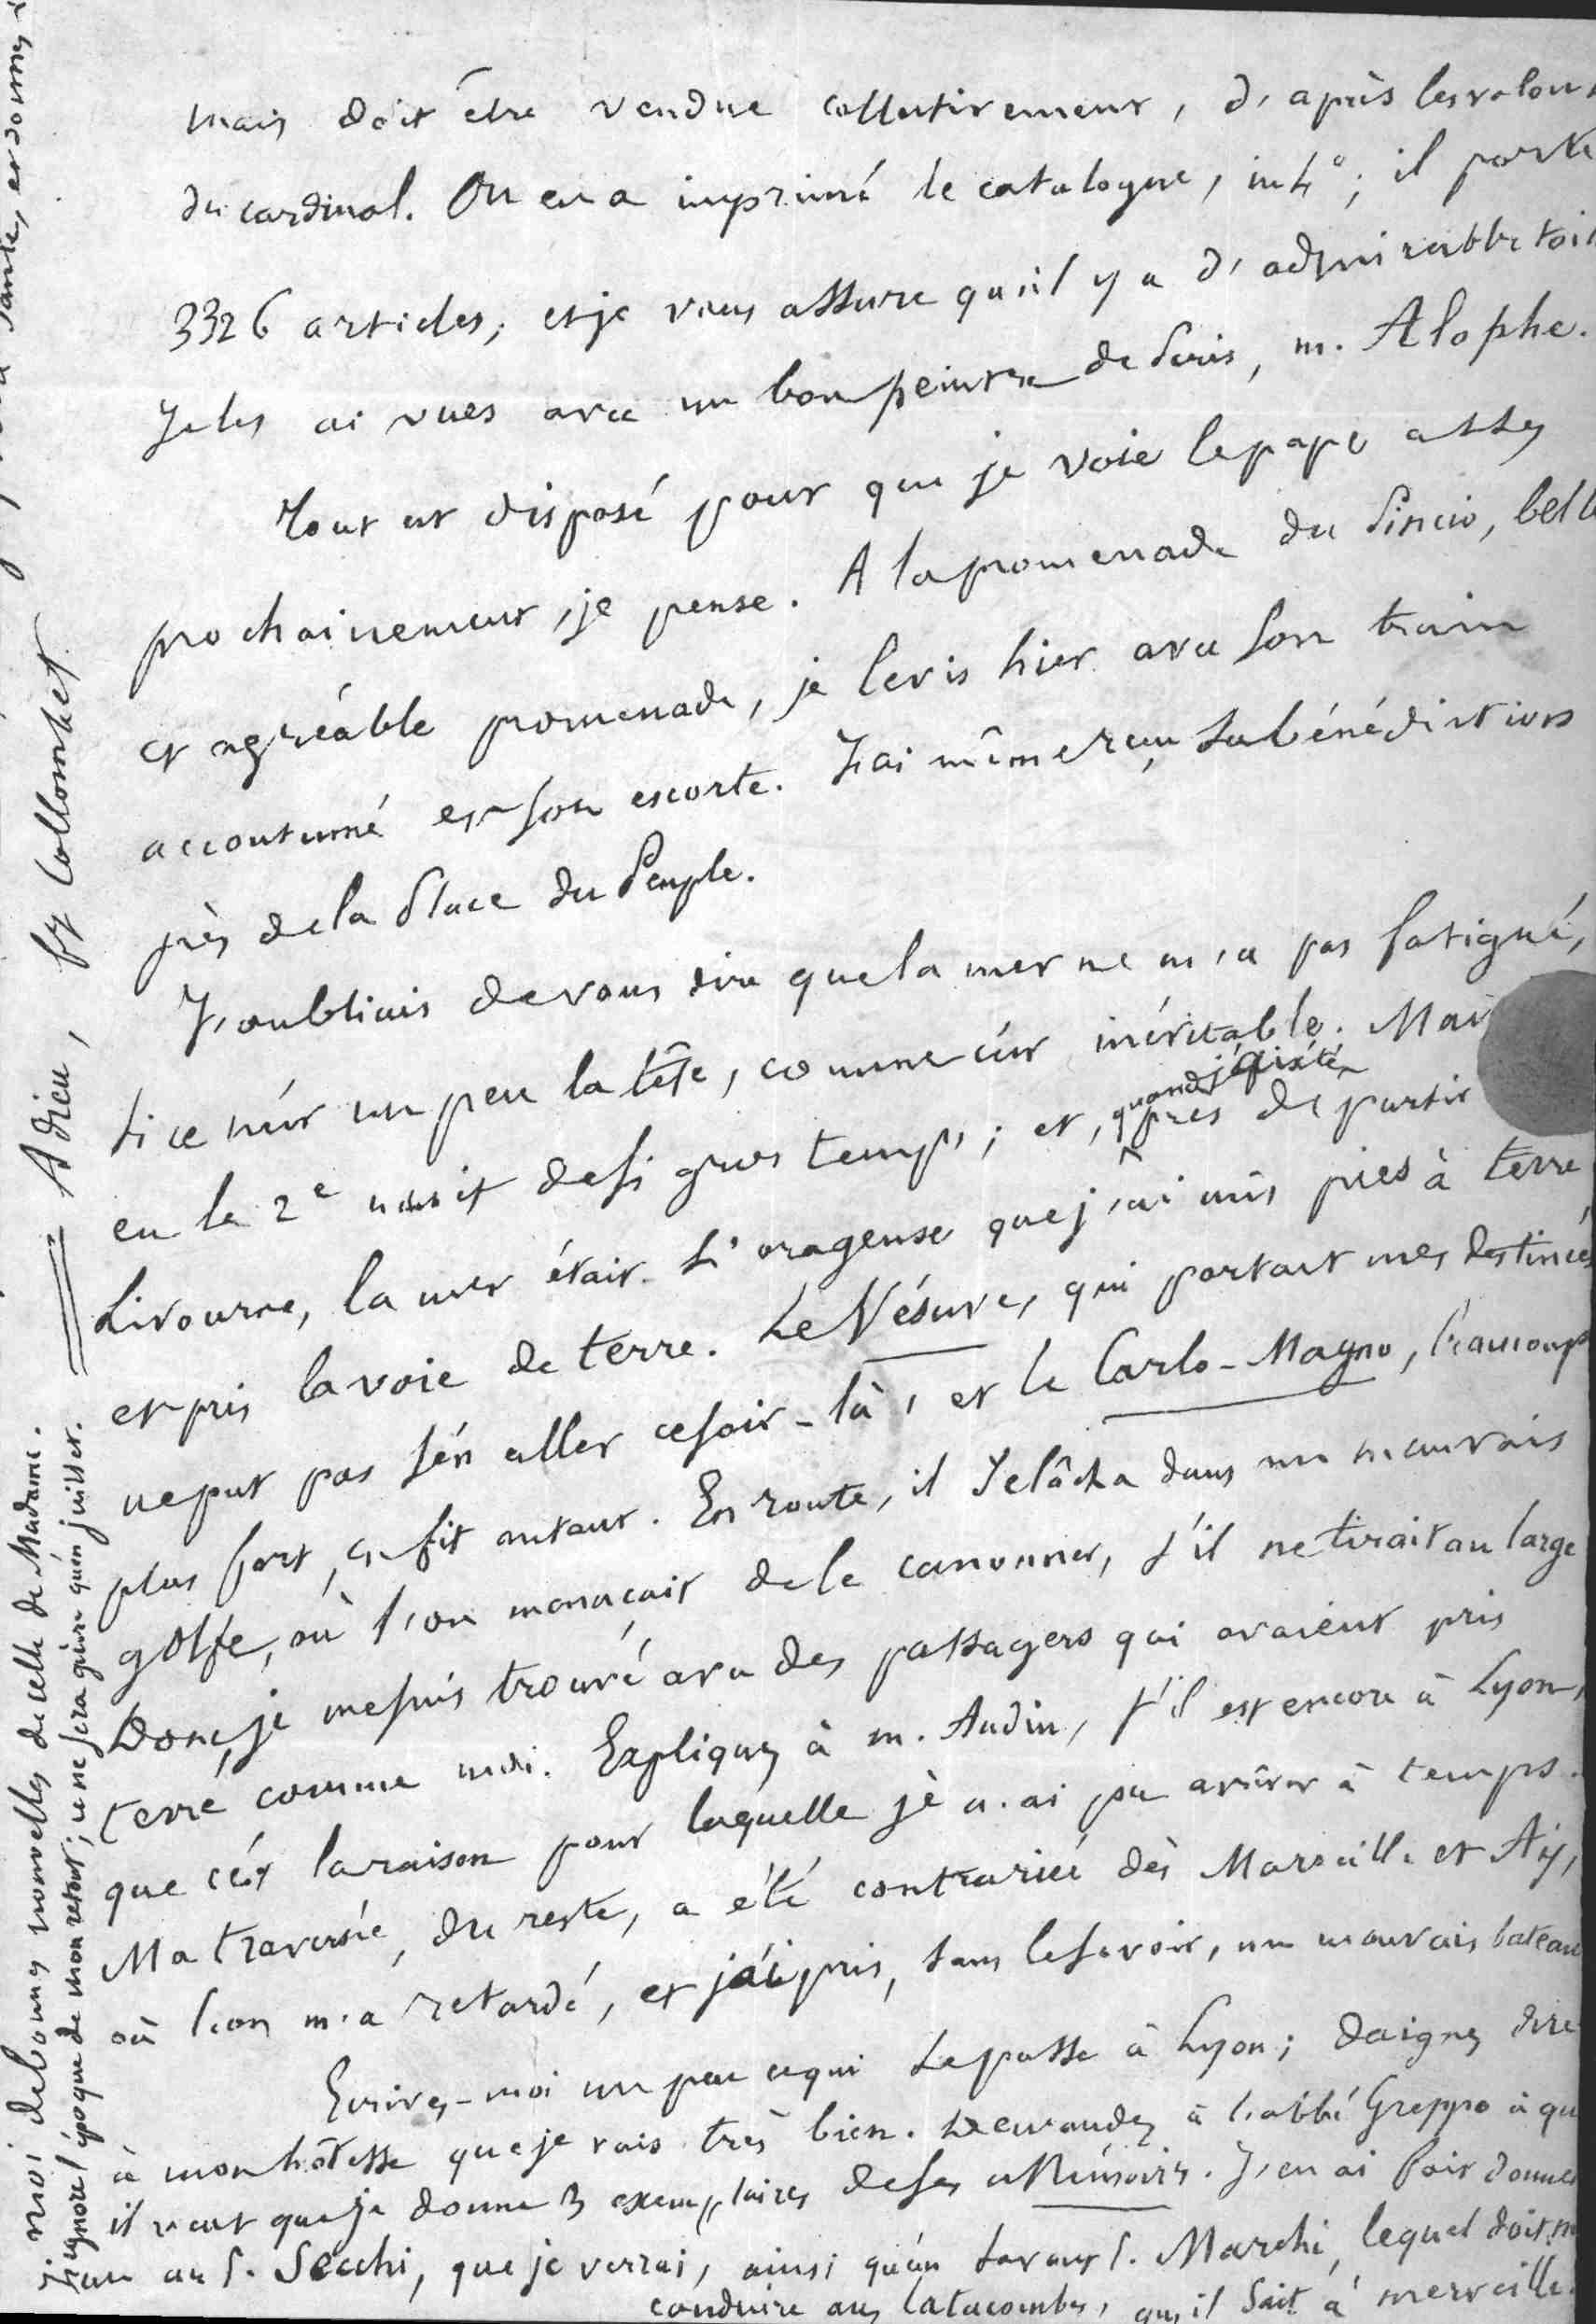 mais doit être vendue collectivement, d'après les volon
du cardinal. On en a imprimé le catalogue, in 4°; il porte
3326 articles; et je vous assure qu'il y a d'admirables toil
Je les ai vues avec un bon peintre de Paris, m. Alophe.
Tout est disposé pour que je voie le pape assez
prochainement, je pense. A la promenade du Pincio, belle
et agréable promenade, je le vis hier avec son train
accoutumé et son escorte. J'ai même reçu sa bénédiction
près de la Place du Peuple.
J'oubliais de vous dire que la mer ne m'a pas fatigué,
si ce n'est un peu la tête, comme c'est inévitable. Mais
en la 2e nuit de si gros temps; et, quand j'ai quitté près de partir
Livourne, la mer était si orageuse que j'ai mis pied à terre
et pris la voie de terre. Le Vésuve, qui portait mes destinées
ne put pas s'en aller ce soir-là, et le Carlo-Magno, beaucoup
plus fort, en fit autant. En route, il relâcha dans un mauvais
golfe, où l'on menaçait de le canonner, s'il ne tirait au large
Donc, je me suis trouvé avec des passagers qui avaient pris
terre comme moi. Expliquez à m. Audin, s'il est encore à Lyon,
que c'est la raison pour laquelle je n'ai pu arriver à temps.
Ma traversée, du reste, a été contrariée dès Marseille et Aix,
où l'on m'a retardé, et j'ai pris, sans le savoir, un mauvais bateau
Ecrivez-moi un peu ce qui se passe à Lyon; daignez dire
à mon hôtesse que je vais très bien. Demandez à l'abbé Greppo à qui
il veut que je donne 3 exemplaires de ses Mémoires. J'en ai fait donner
un au P. Secchi, que je verrai, ainsi qu'un savant P. Marchi, lequel doit m
conduire aux Catacombes, qu'il sait à merveille.
moi de bonnes nouvelles de celle de Madame.
J'ignore l'époque de mon retour; ce ne sera guère qu'en juillet.
Adieu, fz Collombet
santé, et donnez